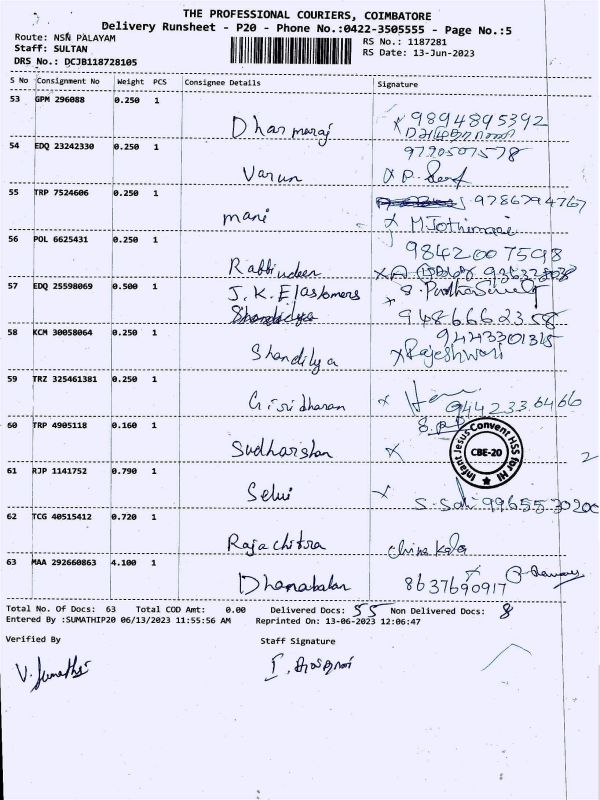 THE PROFESSIONAL COURIERS, COIMBATORE
Delivery Runsheet - P20 - Phone No.:0422-3505555 - Page No.:5
Route: NSN PALAYAM
RS No.: 1187281
Staff: SULTAN
RS Date: 13-Jun-2023
DRS No.: DCJB118728105
S No Consignment No Weight PCS Consignee Details Signature
53 GPM 296088 0.250 1
Dharmaraj x 9894895392
54 EDQ 23242330 0.250 1 9790507578
Varun
55 TRP 7524606 0.250 1 9786794767
mani M Jothimani
56 POL 6625431 0.250 1 9842007598
Rabbindeen
57 EDQ 25598069 0.500 1 J.K. Elastomers
9486662358
58 KCM 30058064 0.250 1 9443301315
Shandilya x Rajeshwari
59 TRZ 325461381 0.250 1
Giridharan x 944233.6466
60 TRP 4905118 0.160 1
Sudharshan x
Infant Jesus Convent HSS for HI
CBE-20
2
61 RJP 1141752 0.790 1
Selvi x
62 TCG 40515412 0.720 1
Rajachitra
63 MAA 292660863 4.100 1
Dhanabalan 8637690917
Total No. Of Docs: 63 Total COD Amt: 0.00 Delivered Docs: 55 Non Delivered Docs: 8
Entered By :SUMATHIP20 06/13/2023 11:55:56 AM Reprinted On: 13-06-2023 12:06:47
Verified By Staff Signature
V. Sumathi